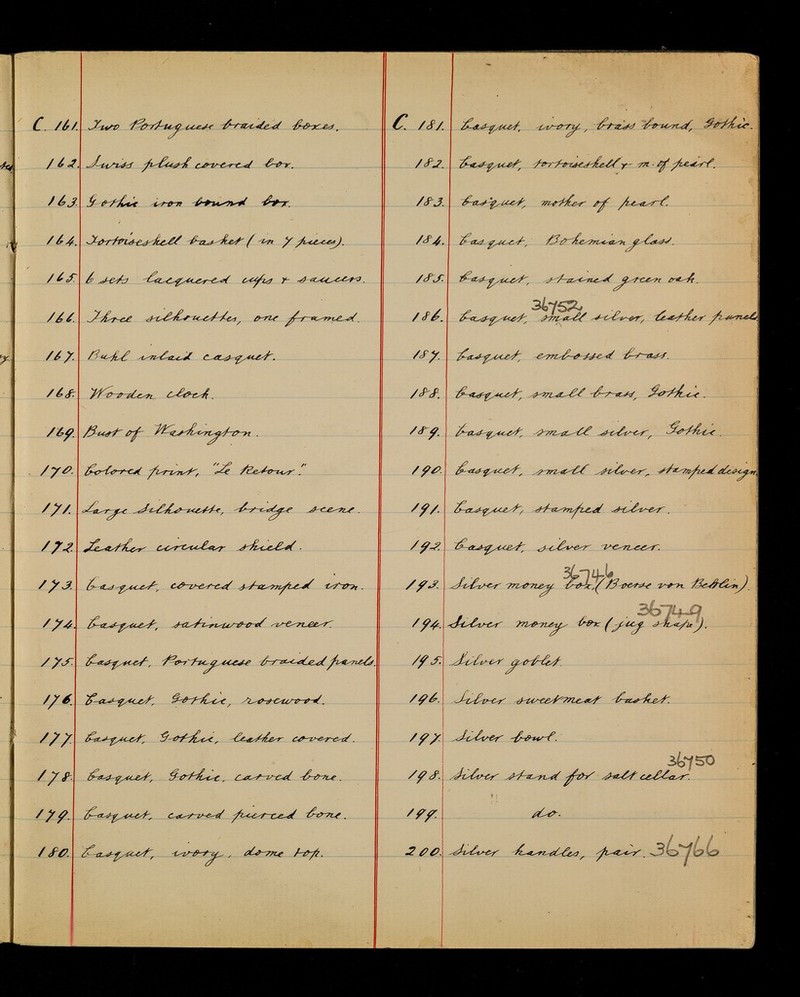 C. 161. Two Portuguese braided boxes.
162. Swiss plush covered box.
163. Gothic iron bound box.
164. Tortoiseshell basket (in 7 pieces).
165. 6 sets lacquered cups + saucers.
166. Three silhouettes, one framed.
167. Buhl inlaid casquet.
168. Wooden clock.
169. Bust of Washington.
170. Colored print, "Le Retour".
171. Large Silhouette, bridge scene.
172. Leather circular shield.
173. Casquet, covered stamped iron.
174. Casquet, satinwood veneer.
175. Casquet, Portuguese braided panels.
176. Casquet, Gothic, rosewood.
177. Casquet, Gothic, leather covered.
178. Casquet, Gothic, carved bone.
179. Casquet, carved pierced bone.
180. Casquet, ivory, dome top.
C. 181. Casquet, ivory, brass bound, Gothic.
182. Casquet, tortoiseshell + m. of pearl.
183. Casquet, mother of pearl.
184. Casquet, Bohemian glass.
185. Casquet, stained green oak.
36752
186. Casquet, small silver, leather panels
187. Casquet, embossed brass.
188. Casquet, small brass, Gothic.
189. Casquet, small silver, Gothic.
190. Casquet, small silver, stamped design
191. Casquet, stamped silver.
192. Casquet, silver veneer.
36746
193. Silver money box (Boerse von Berlin).
36749
194. Silver money box (jug shape).
195. Silver goblet.
196. Silver sweetmeat basket.
197. Silver bowl.
36750
198. Silver stand for salt cellar.
199. do.
200. Silver handles, pair. 36766